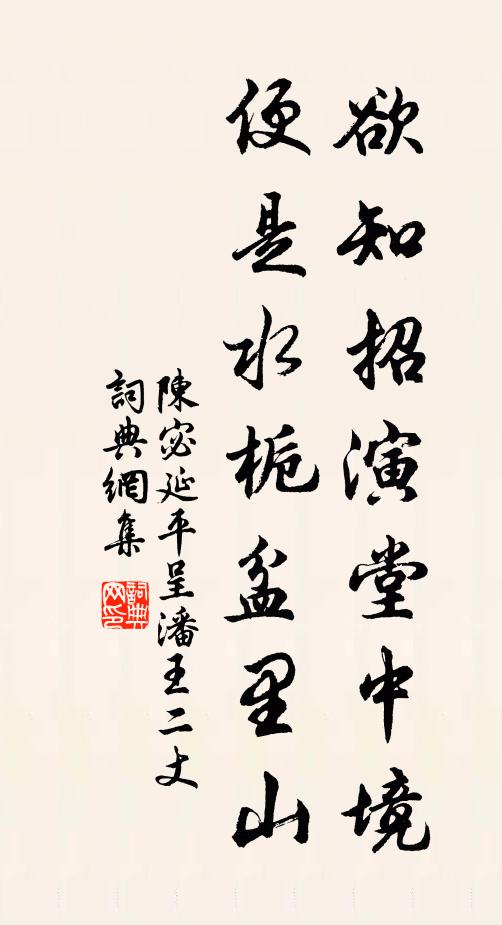 欲知招演堂中境
便是水梔盆里山
陳宓延平呈潘王二丈
詞典網集
詞典网印